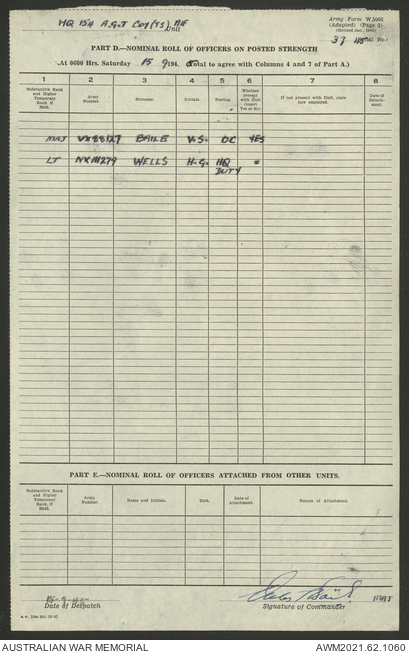 HQ 154 A.G.T Coy (TS) AIF
Unit
Army Form W.3008
(Adapted) (Page 2)
37 45 Serial No.
PART D.—NOMINAL ROLL OF OFFICERS ON POSTED STRENGTH
At 0600 Hrs. Saturday 15 9 194 5 (Total to agree with Columns 4 and 7 of Part A.)
1 2 3 4 5 6 7 8
Substantive Rank and Higher Temporary Rank if Held.
Army Number.
Surname.
Initials.
Posting.
Whether present with Unit (Insert Yes or No)
If not present with Unit, state how employed.
Date of Detachment.
MAJ VX88127 BAILE V.S. OC YES
LT NX111279 WELLS H.G. HQ "
DUTY
PART E.—NOMINAL ROLL OF OFFICERS ATTACHED FROM OTHER UNITS.
Substantive Rank and Higher Temporary Rank, if Held.
Army Number.
Name and Initials.
Unit.
Date of Attachment.
Nature of Attachment.
15-9-45
Date of Despatch
MAJ
Signature of Commander
AUSTRALIAN WAR MEMORIAL
AWM2021.62.1060